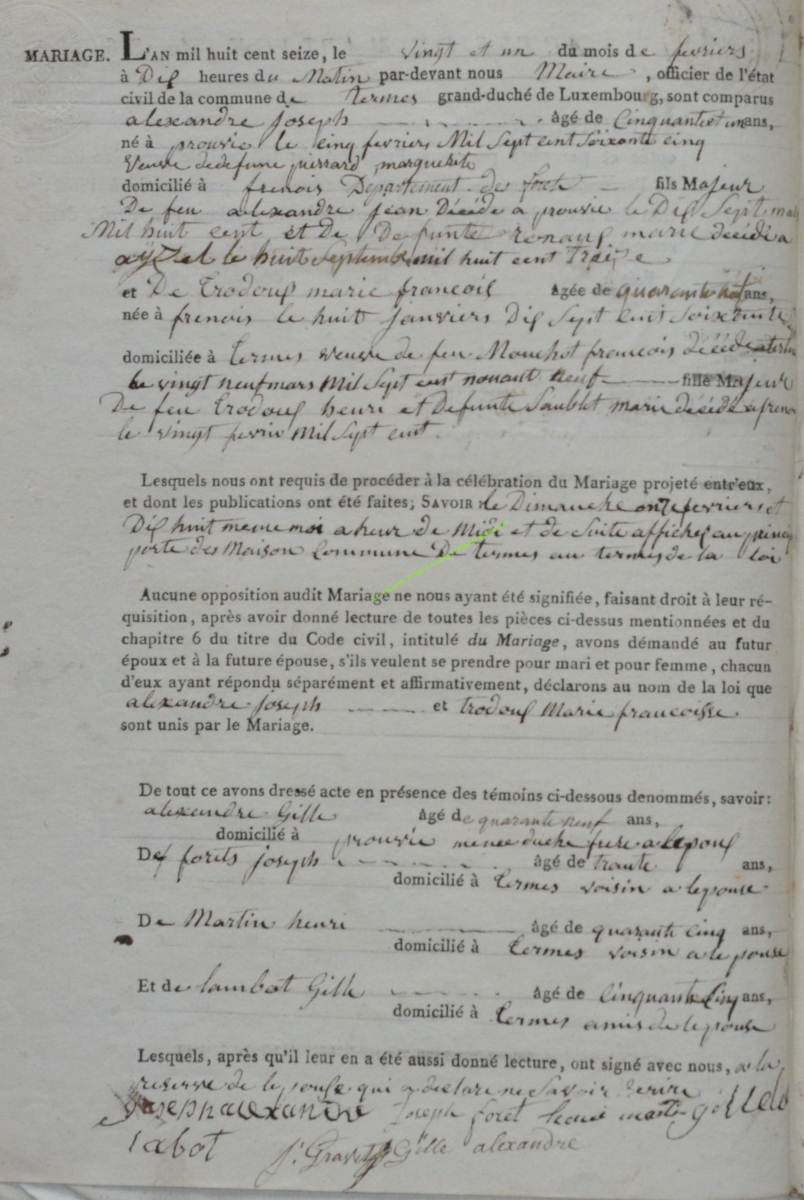 MARIAGE. L'AN mil huit cent seize, le vingt et un du mois de fevriers
à Dix heures du Matin par-devant nous Maire , officier de l'état
civil de la commune de termes grand-duché de Luxembourg, sont comparus
alexandre joseph âgé de Cinquantetun ans,
né à prouvie le cinq fevriers Mil Sept cent Soixante cinq
Veuve dedefune pierrard marguerite
domicilié à frenois Departement des foret fils Majeur
De feu alexandre jean Décéde a prouvie le Dix Sept mai
Mil huit cent et De Defunte renaux marie decédé a
le huit Septembre mil huit cent Treize
et De Trodoux marie francois âgée de quarante huit ans,
née à frenois le huit janviers Dix Sept cent Soixante
domiciliée à termes veuve de feu Mouchot francois décédé
le vingt neuf mars Mil Sept cent nonant neuf fille Majeur
De feu Trodoux henri et Defunte Saublet marie decédé a frenoi
le vingt fevrie Mil Sept cent
Lesquels nous ont requis de procéder à la célébration du Mariage projeté entr'eux,
et dont les publications ont été faites; SAVOIR : le Dimanche onze fevriers et
Dix huit meme moi a heur de Midi et de Suite affiches au
porte des Maison Commune De termes au termes de la loi
Aucune opposition audit Mariage ne nous ayant été signifiée, faisant droit à leur ré-
quisition, après avoir donné lecture de toutes les pièces ci-dessus mentionnées et du
chapitre 6 du titre du Code civil, intitulé du Mariage, avons démandé au futur
époux et à la future épouse, s'ils veulent se prendre pour mari et pour femme, chacun
d'eux ayant répondu séparément et affirmativement, déclarons au nom de la loi que
alexandre joseph et trodoux Marie francoisse
sont unis par le Mariage.
De tout ce avons dressé acte en présence des témoins ci-dessous denommés, savoir:
alexandre Gille âgé de quarante neuf ans,
domicilié à prouvie frere a lepoux
De forets joseph âgé de trante ans,
domicilié à termes voisin a lepouse
De Martin henri âgé de quarante cinq ans,
domicilié à termes voisin a lepouse
Et de lambot Gille âgé de Cinquante Cinq ans,
domicilié à termes amis de lepouse
Lesquels, après qu'il leur en a été aussi donné lecture, ont signé avec nous, a la
reserve de lepouse qui a declare ne Savoir decrire
joseph alexandre Joseph foret henri martin gille
labot j. Gravet Gille alexandre